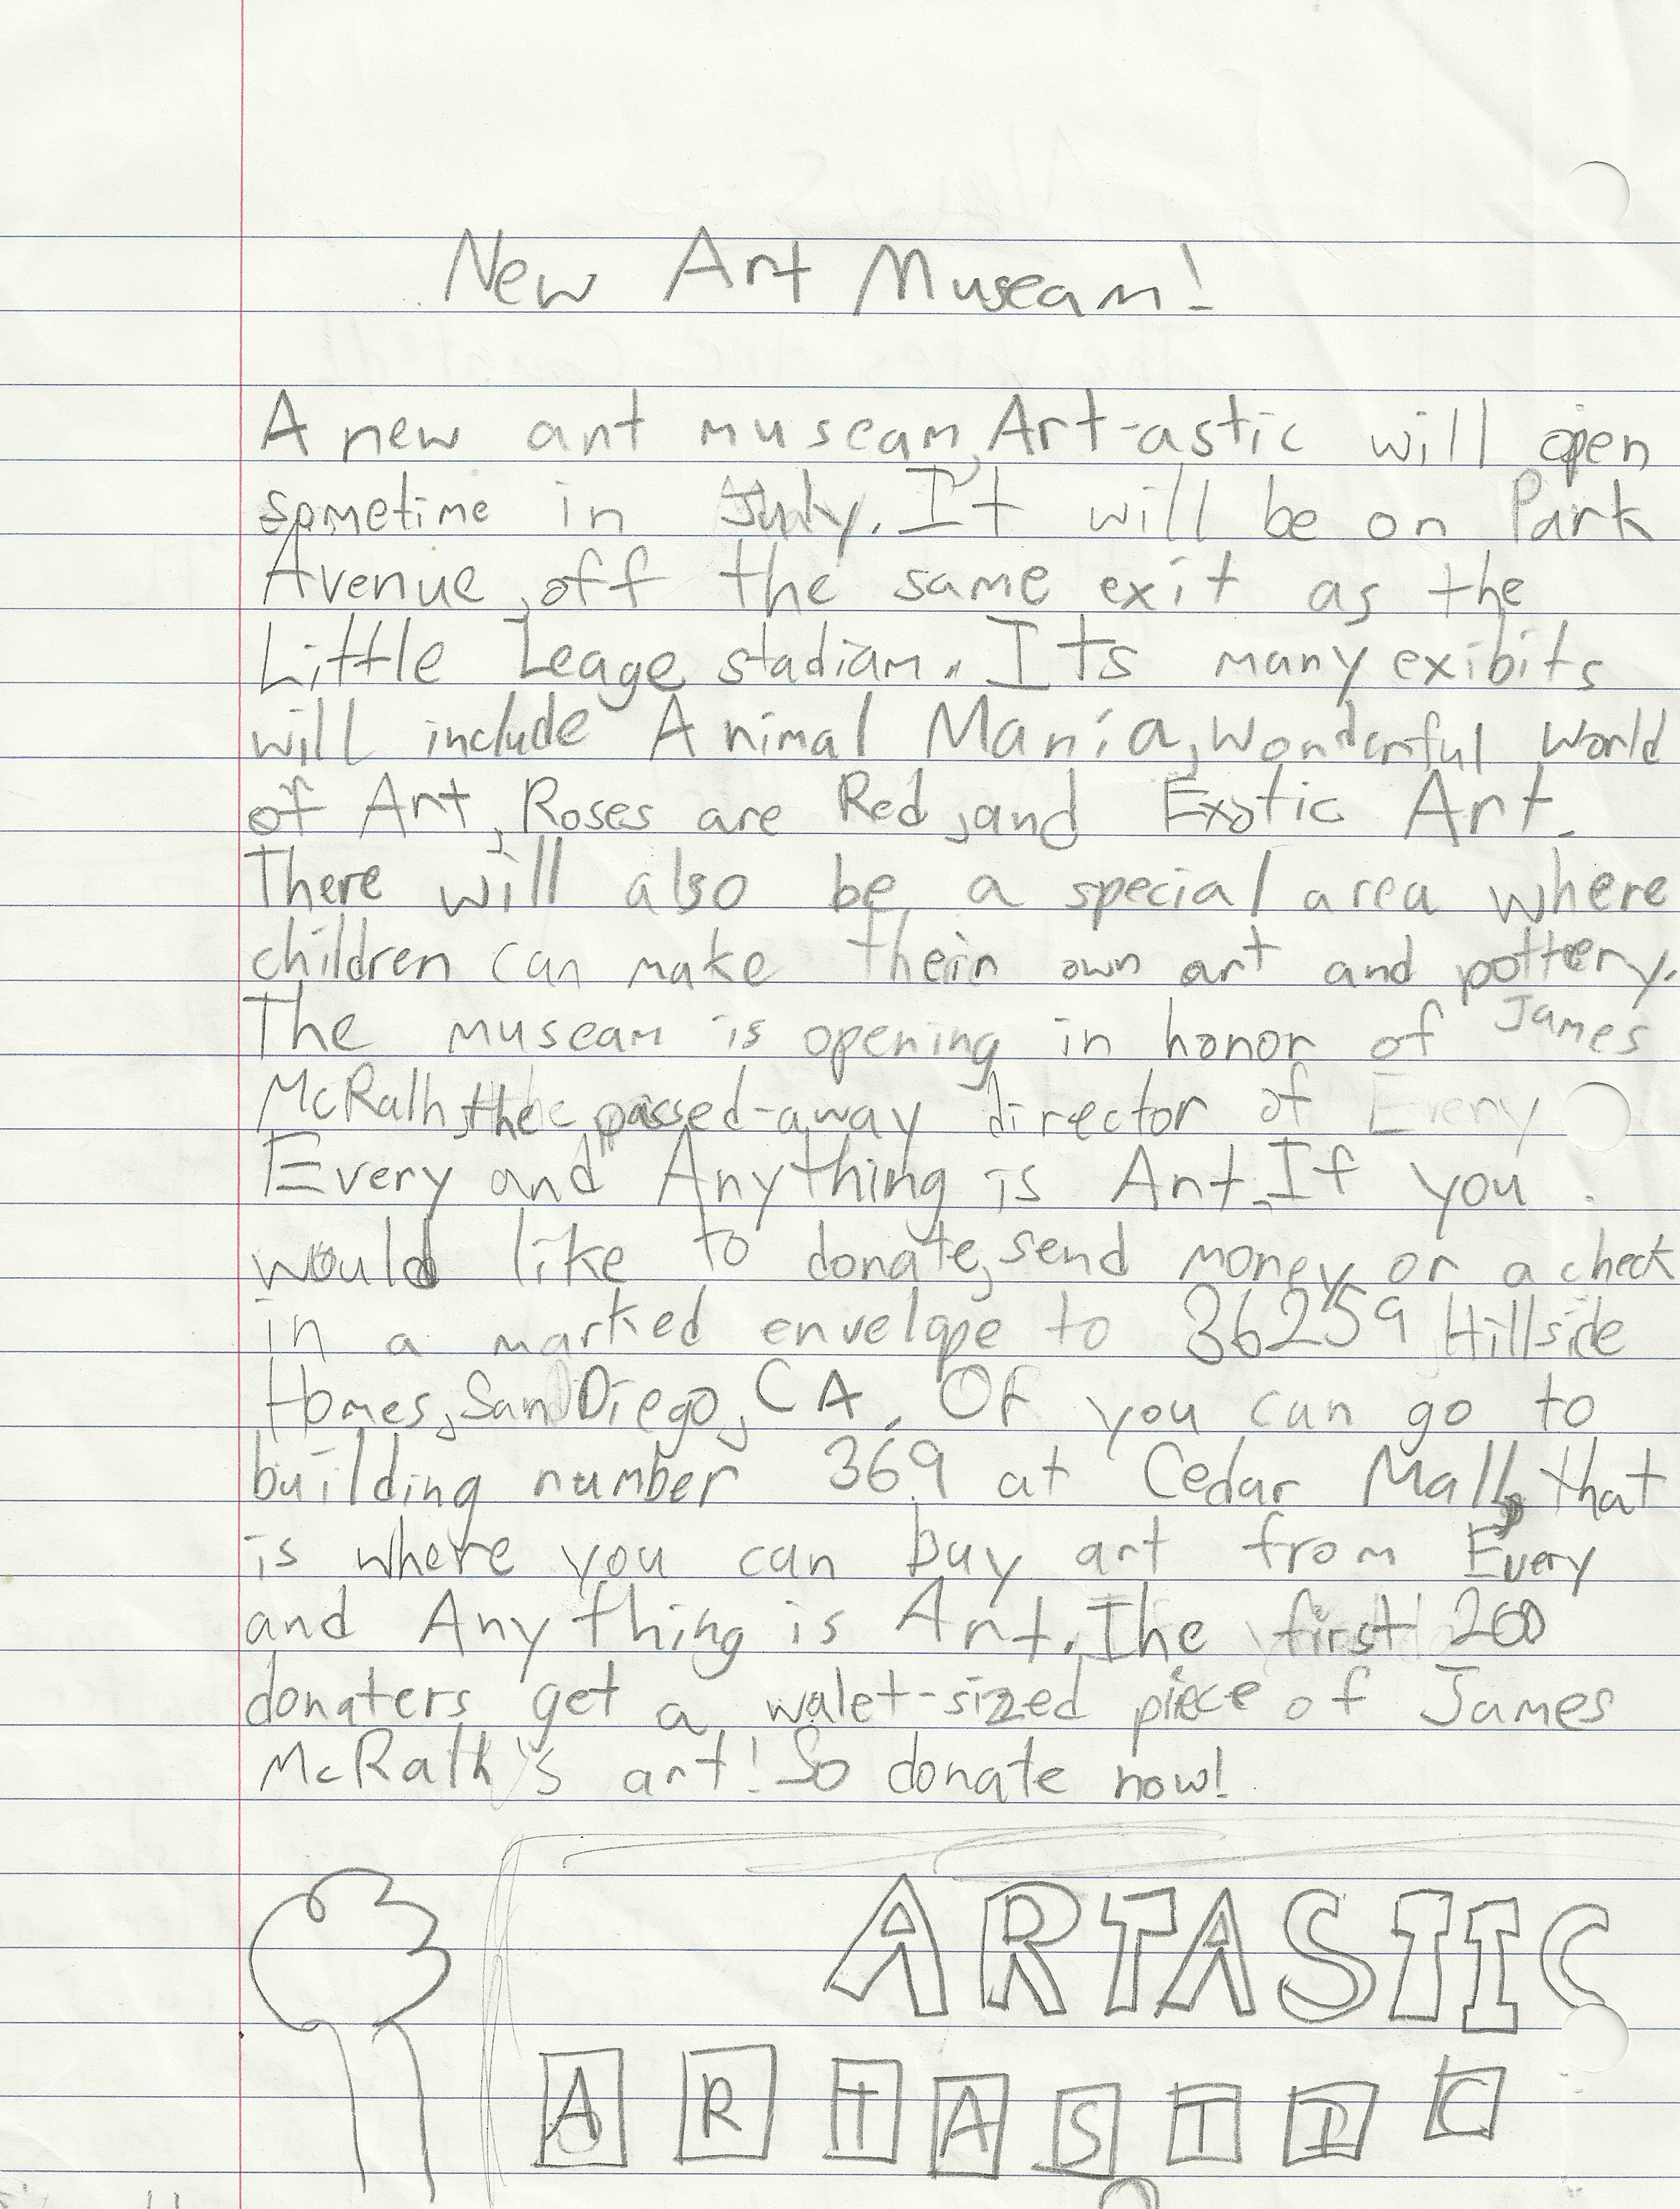 New Art Museam!
A new art museam, Art-astic will open
sometime in July. It will be on Park
Avenue, off the same exit as the
Little Leage stadiam. Its many exibits
will include Animal Mania, Wonderful World
of Art, Roses are Red, and Exotic Art.
There will also be a special area where
children can make their own art and pottery.
The museam is opening in honor of James
McRath, the passed-away director of Every
Every and Anything is Art. If you
would like to donate, send money or a check
in a marked envelope to 36259 Hillside
Homes, San Diego, CA. Or you can go to
building number 369 at Cedar Mall, that
is where you can buy art from Every
and Anything is Art. The first 200
donaters get a walet-sized piece of James
McRath's art! So donate now!
ARTASTIC
ARTASTIC